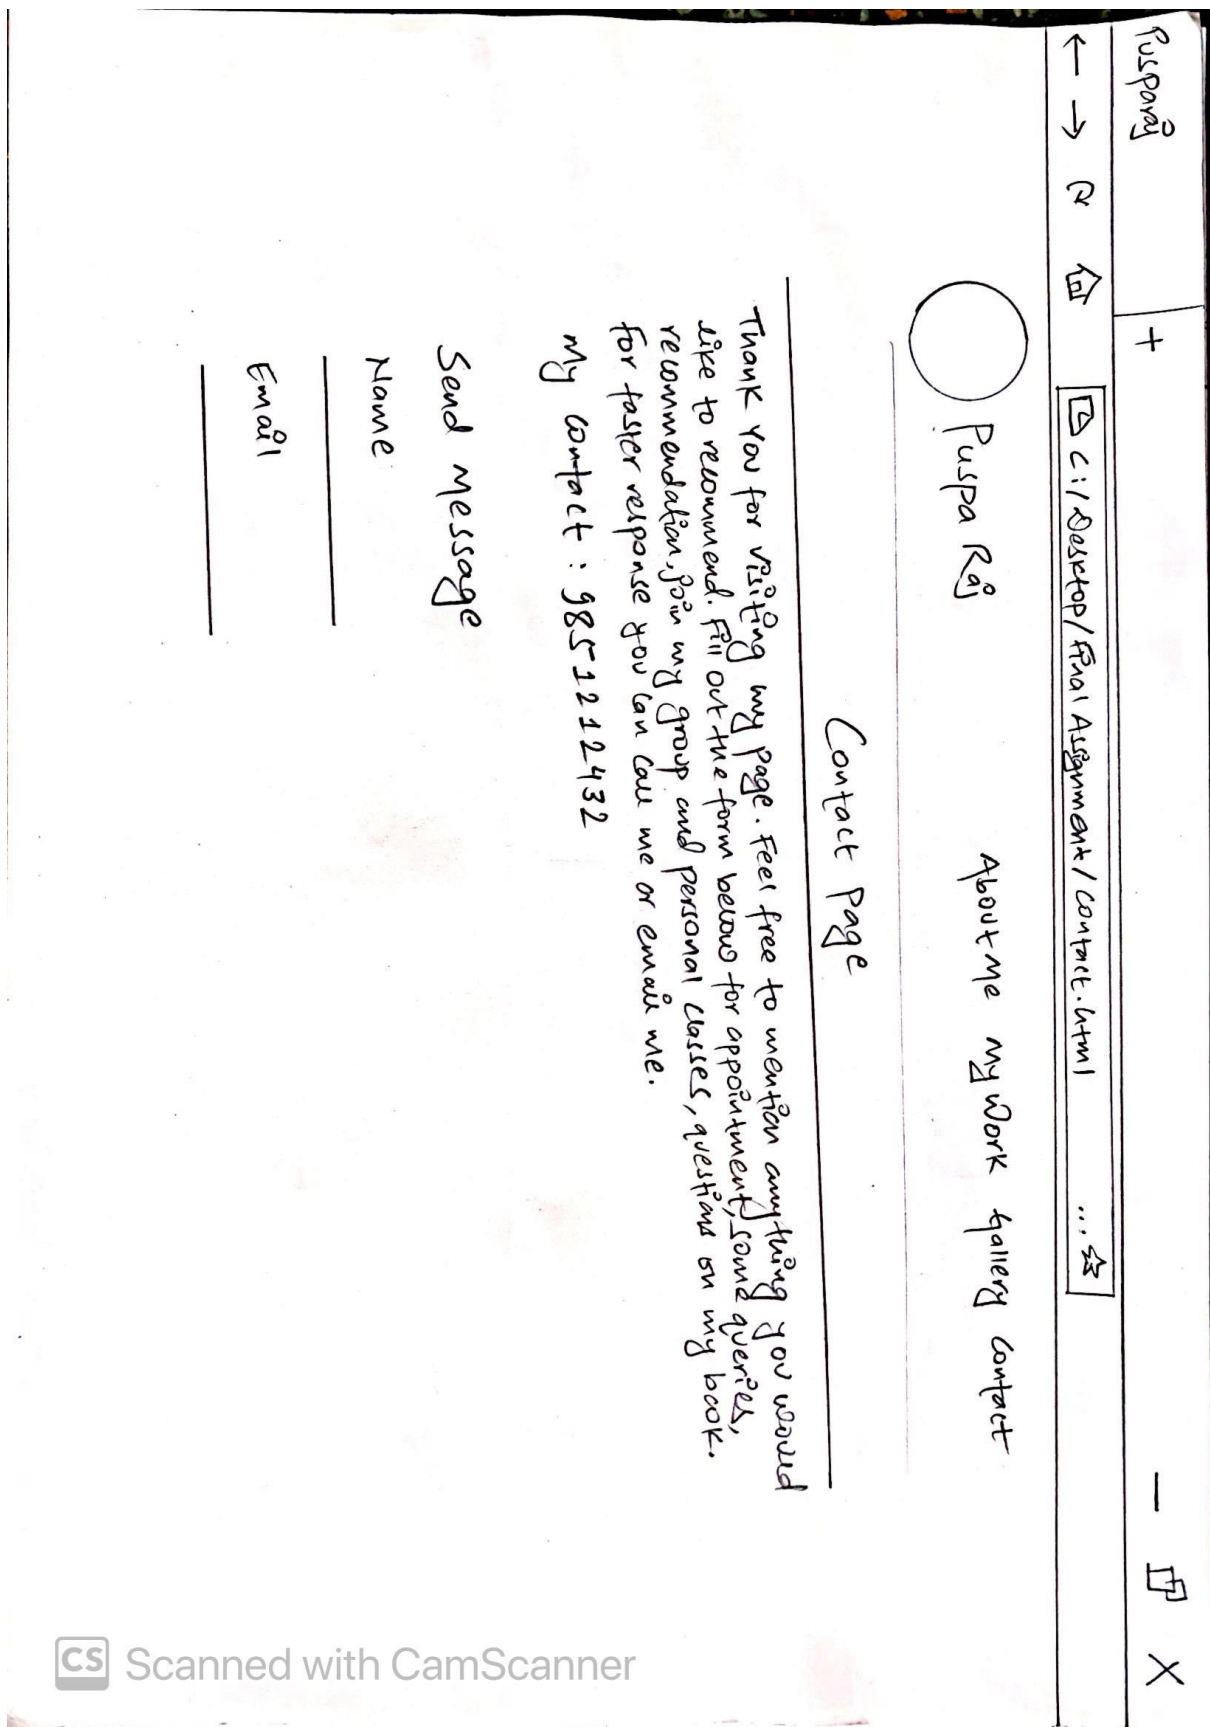 Pusparaj +
C:/Desktop/Final Assignment/Contact.html ...
Puspa Raj
About me My Work Gallery Contact
Contact Page
Thank you for visiting my page. Feel free to mention anything you would
like to recommend. Fill out the form below for appointment, some queries,
recommendation, join my group and personal classes, questions on my book.
For faster response you can call me or email me.
My contact : 9851212432
Send Message
Name
Email
CS Scanned with CamScanner